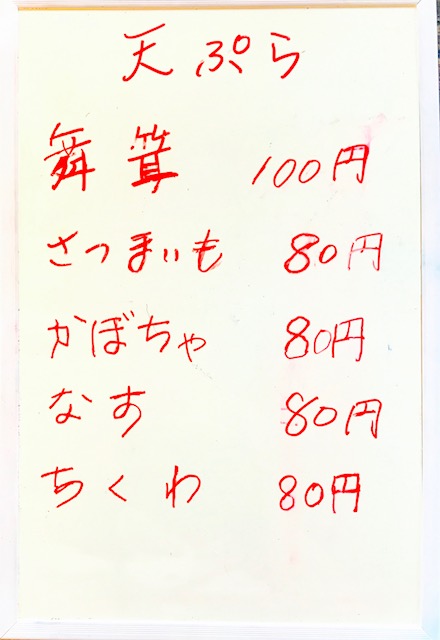 天ぷら
舞茸 100円
さつまいも 80円
かぼちゃ 80円
なす 80円
ちくわ 80円